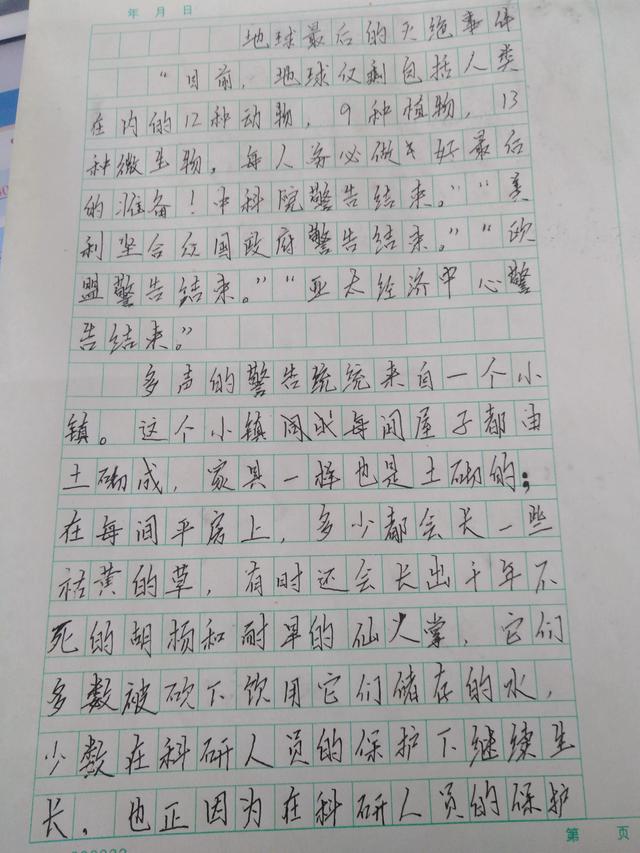 年 月 日
地球最后的灭绝事件
“目前，地球仅剩包括人类
在内的12种动物，9种植物，13
种微生物，每人务必做好最后
的准备！中科院警告结束。”“美
利坚合众国政府警告结束。”“欧
盟警告结束。”“亚太经济中心警
告结束。”
多声的警告统统来自一个小
镇。这个小镇的每间屋子都由
土砌成，家具一样也是土砌的；
在每间平房上，多少都会长一些
枯黄的草，有时还会长出千年不
死的胡杨和耐旱的仙人掌，它们
多数被砍下饮用它们储存的水，
少数在科研人员的保护下继续生
长，也正因为在科研人员的保护
第 页